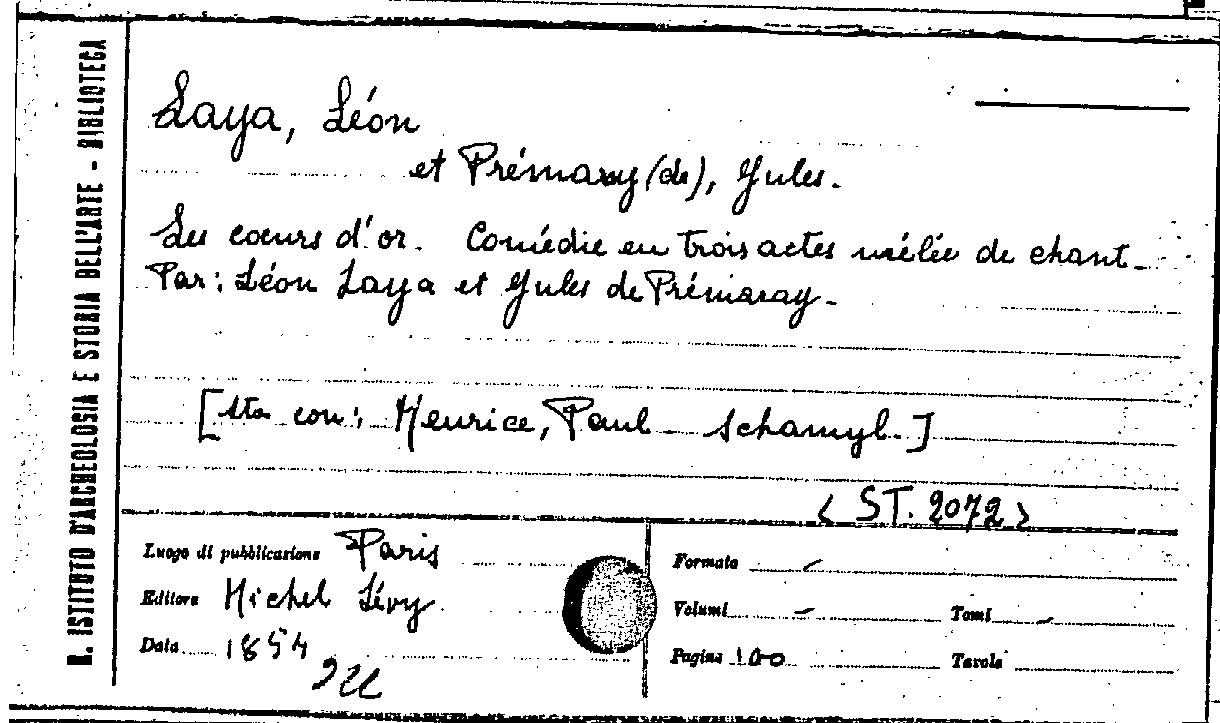 R. ISTITUTO D'ARCHEOLOGIA E STORIA DELL'ARTE - BIBLIOTECA
Laya, Léon
et Prémaray (de), Yules.
Les coeurs d'or. Comédie en trois actes mêlée de chant.
Par: Léon Laya et Yules de Prémaray.
[Sta con: Meurice, Paul Schamyl.]
< ST. 2072 >
Luogo di pubblicazione Paris
Editore Michel Lévy
Data 1854
Formato -
Volumi - Tomi -
Pagine 100 Tavole